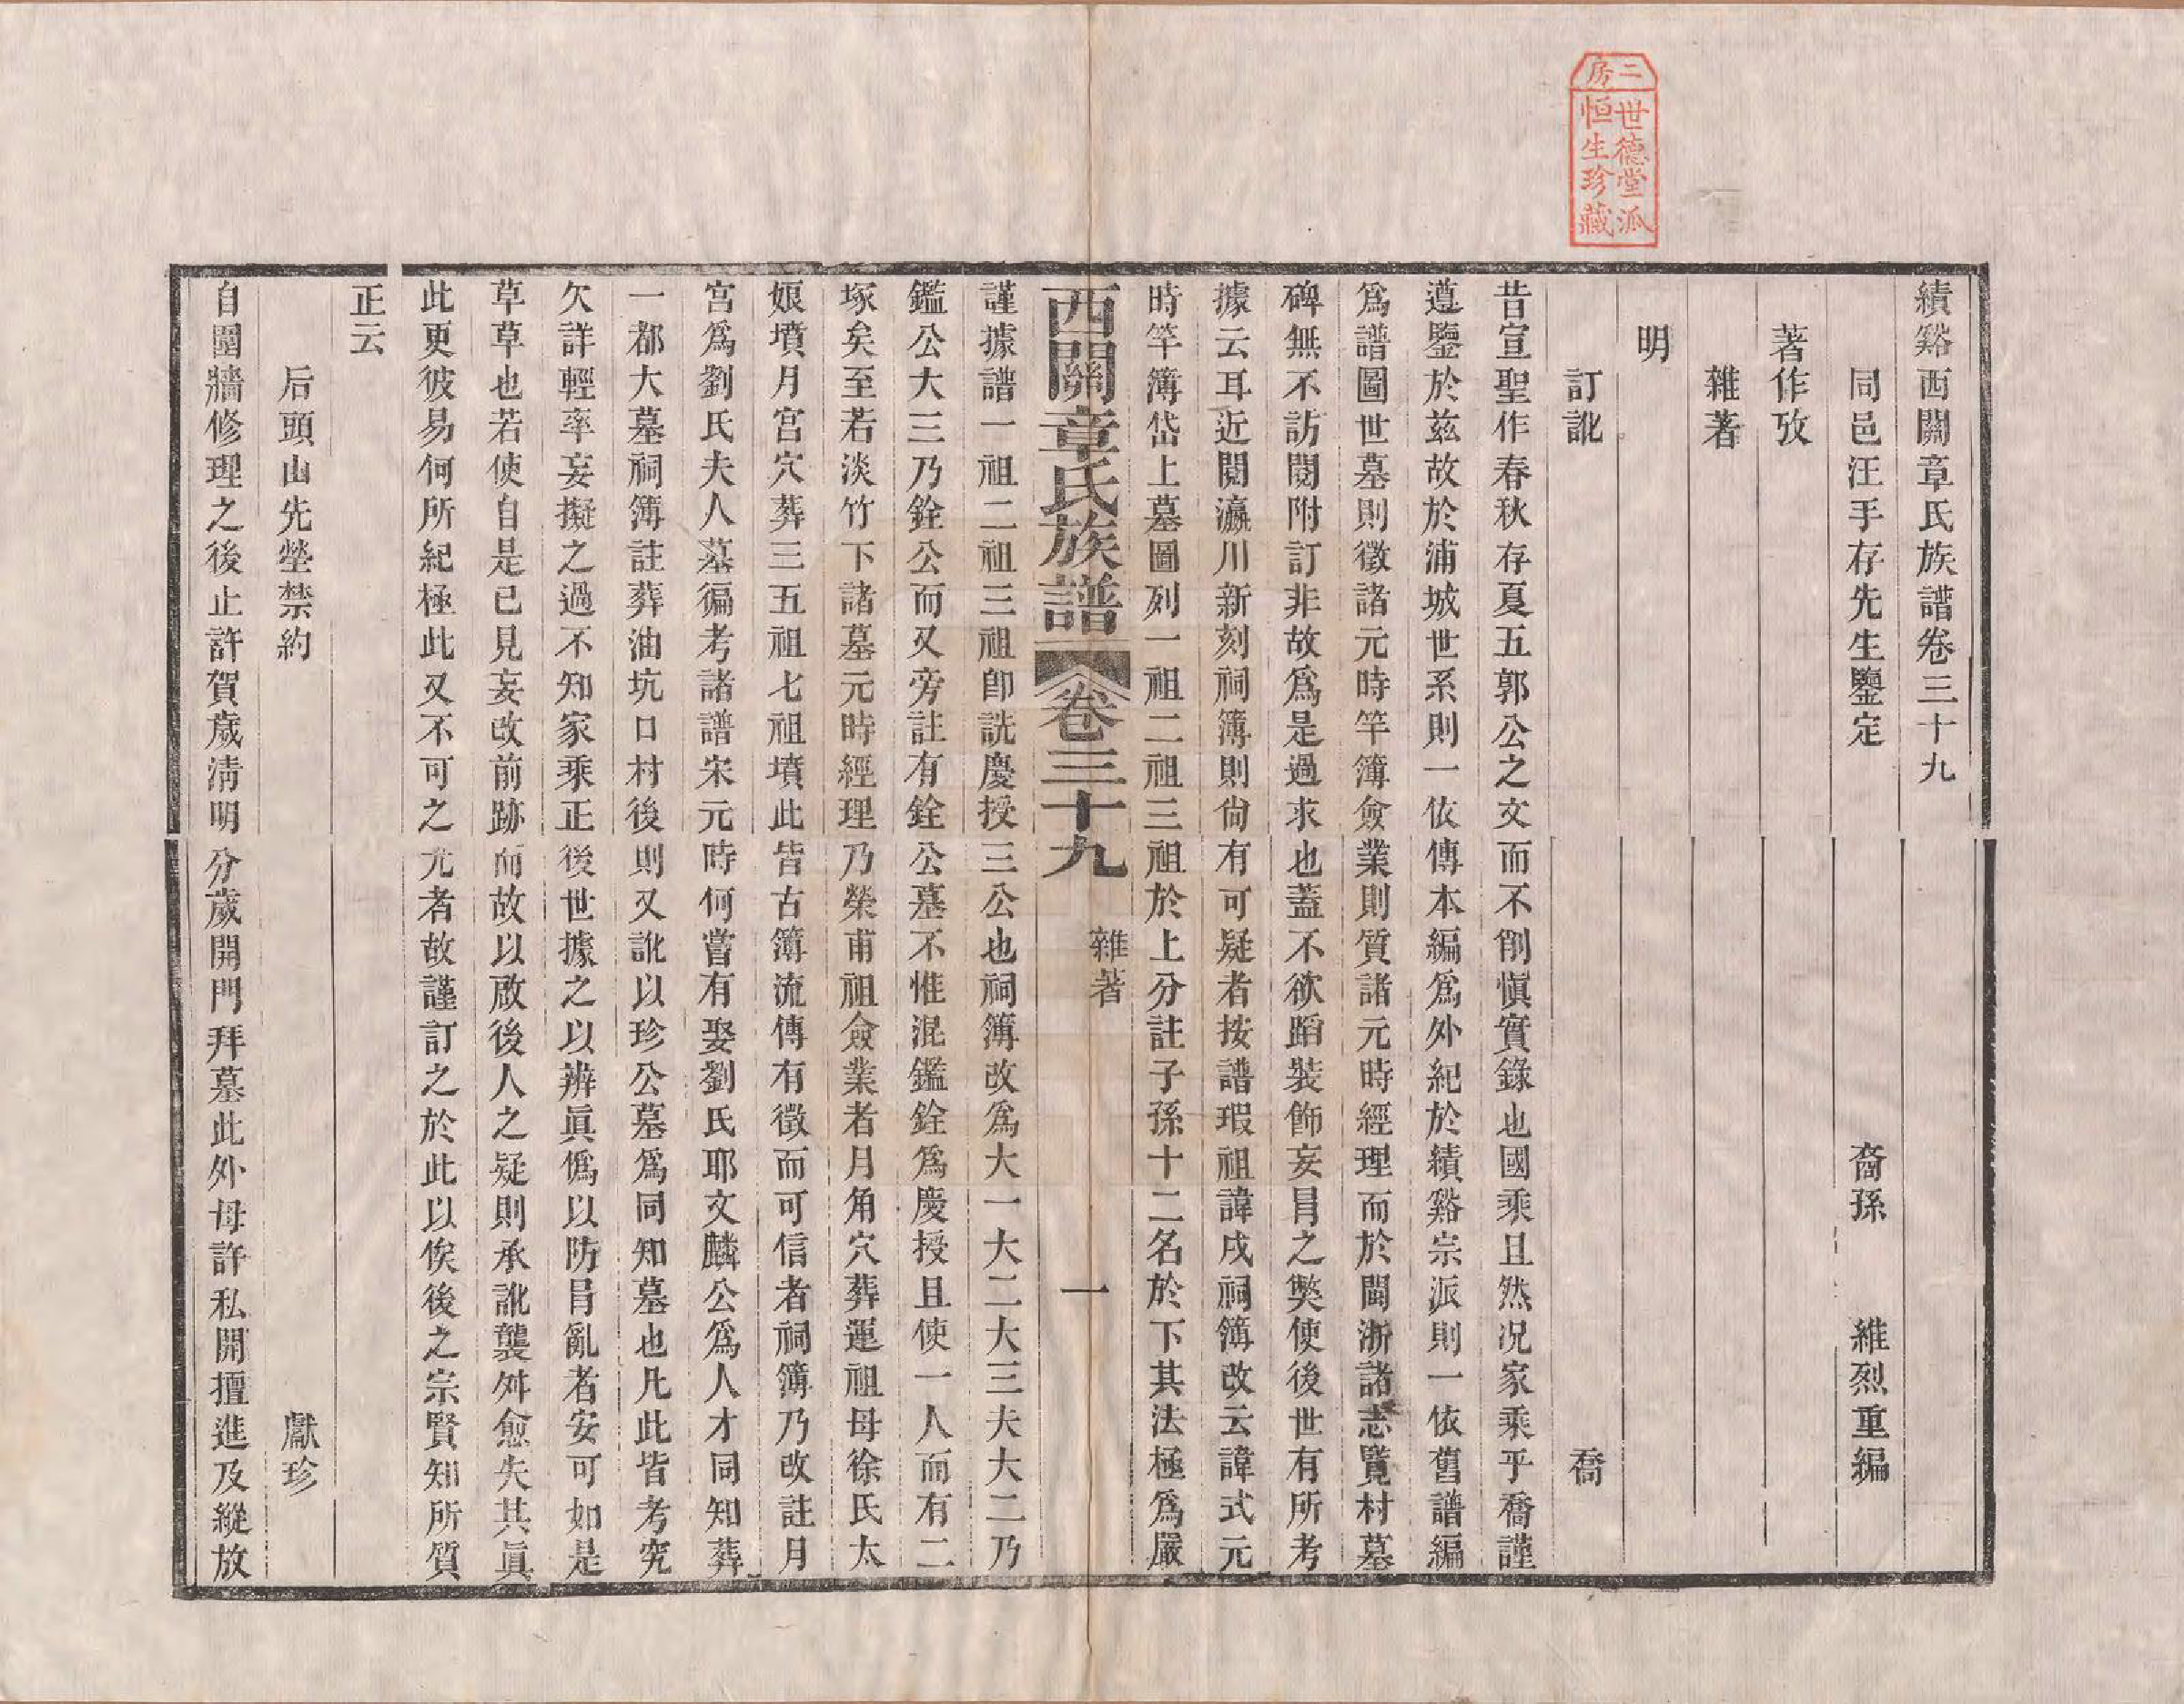 二房
世德堂派
恒生珍藏
績谿西關章氏族譜卷三十九
同邑汪手存先生鑒定 裔孫 維烈重編
著作攷
雜著
明
訂訛 喬
昔宣聖作春秋存夏五郭公之文而不削愼實錄也國乘且然况家乘乎喬謹
遵鑒於兹故於浦城世系則一依傳本編爲外紀於績谿宗派則一依舊譜編
爲譜圖世墓則徵諸元時竿簿僉業則質諸元時經理而於閩浙諸志覽村墓
碑無不訪閱附訂非故爲是過求也蓋不欲蹈裝飾妄冐之獘使後世有所考
據云耳近閱瀛川新刻祠簿則尙有可疑者按譜瑕祖諱戌祠簿改云諱式元
時竿簿岱上墓圖列一祖二祖三祖於上分註子孫十二名於下其法極爲嚴
西關章氏族譜 卷三十九 雜著 一
謹據譜一祖二祖三祖卽詵慶授三公也祠簿改爲大一大二大三夫大二乃
鑑公大三乃銓公而又旁註有銓公墓不惟混鑑銓爲慶授且使一人而有二
塚矣至若淡竹下諸墓元時經理乃榮甫祖僉業者月角穴葬運祖母徐氏太
娘墳月宮穴葬三五祖七祖墳此皆古簿流傳有徵而可信者祠簿乃改註月
宮爲劉氏夫人墓徧考諸譜宋元時何嘗有娶劉氏耶文麟公爲人才同知葬
一都大墓祠簿註葬油坑口村後則又訛以珍公墓爲同知墓也凡此皆考究
欠詳輕率妄擬之過不知家乘正後世據之以辨眞僞以防冐亂者安可如是
草草也若使自是已見妄改前跡而故以啟後人之疑則承訛襲舛愈失其眞
此更彼易何所紀極此又不可之尤者故謹訂之於此以俟後之宗賢知所質
正云
后頭山先塋禁約 獻珍
自圍牆修理之後止許賀歲淸明分歲開門拜墓此外毋許私開擅進及縱放